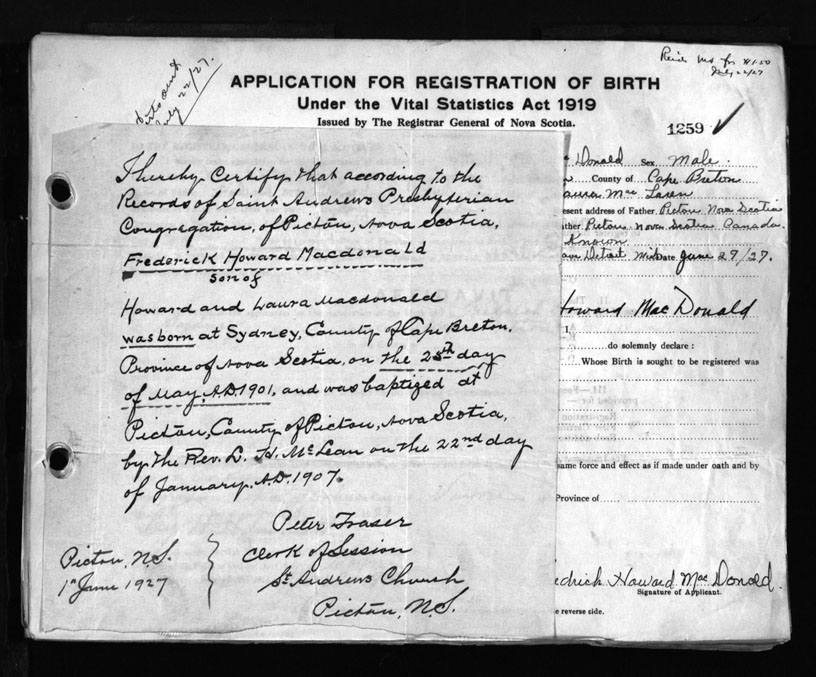 July 22/27.
July 22/27
APPLICATION FOR REGISTRATION OF BIRTH
Under the Vital Statistics Act 1919
Issued by The Registrar General of Nova Scotia.
1259
I hereby Certify that according to the
Records of Saint Andrews Presbyterian
Congregation, of Pictou, Nova Scotia,
Frederick Howard Macdonald
son of
Howard and Laura Macdonald
was born at Sydney, County of Cape Breton,
Province of Nova Scotia, on the 25th day
of May, A.D. 1901, and was baptized at
Pictou, County of Pictou, Nova Scotia,
by the Rev. D. H. McLean on the 22nd day
of January. A.D. 1907.
Peter Fraser
Clerk of Session
St Andrews Church
Pictou, N.S.
Pictou, N.S.
1st June 1927
Donald Sex Male.
County of Cape Breton
Mac Laren
present address of Father Pictou Nova Scotia
Pictou Nova Scotia Canada.
Known
Detroit Mich Date June 27/27.
Howard MacDonald
I,
do solemnly declare :
Whose Birth is sought to be registered was
same force and effect as if made under oath and by
Province of
edrick Howard MacDonald.
Signature of Applicant.
reverse side.